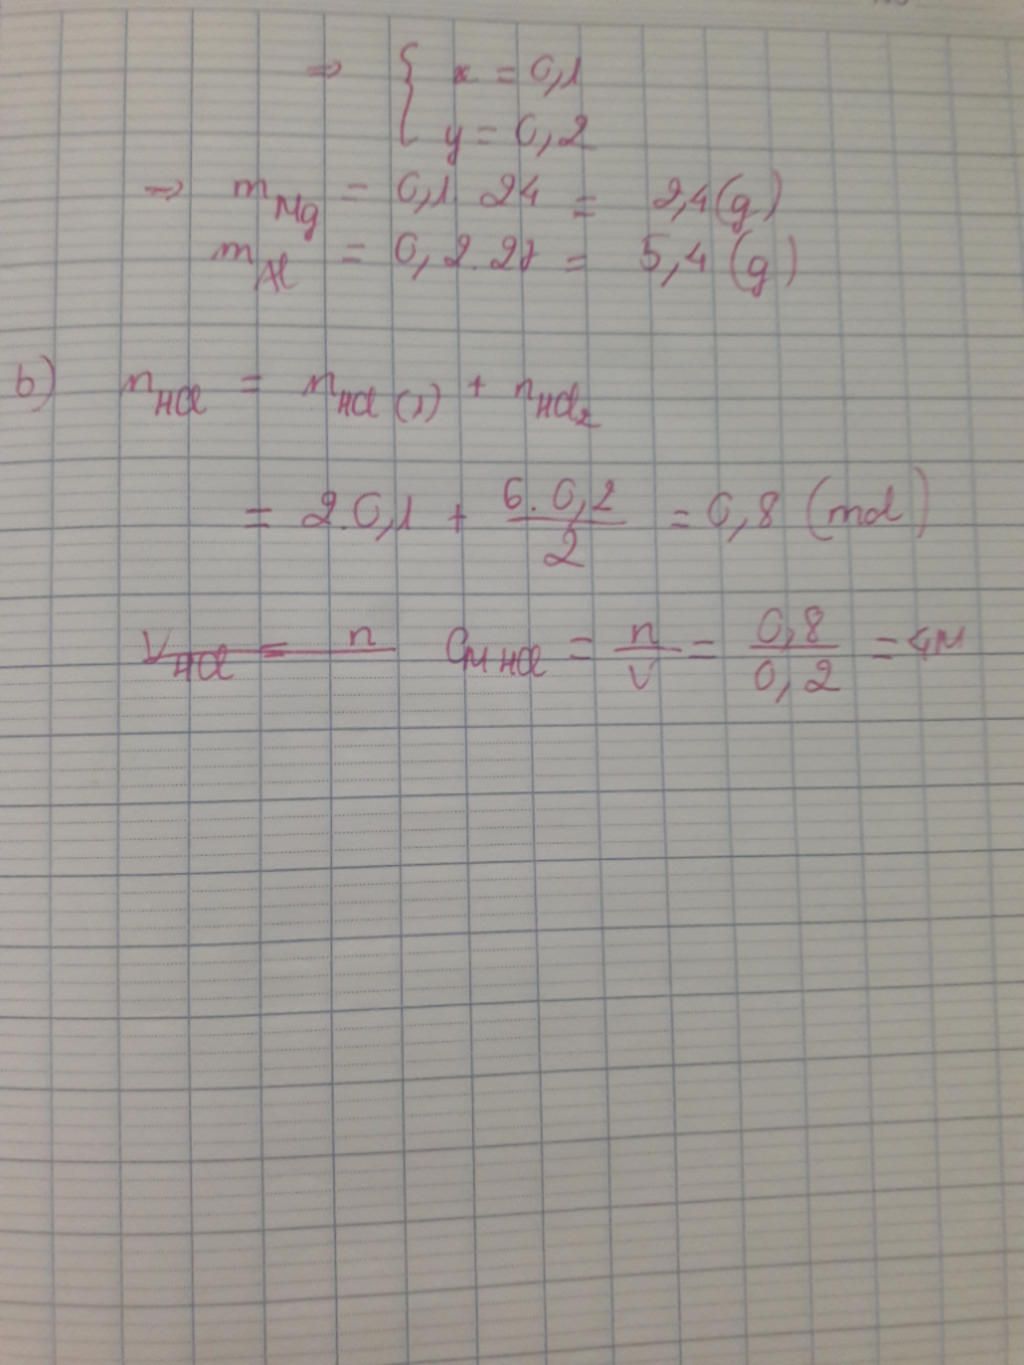 ⇒ { x = 0,1
y = 0,2
⇒ mMg = 0,1 24 = 2,4 (g)
mAl = 0,2.27 = 5,4 (g)
b) nHCl = nHCl (1) + nHCl2
= 2.0,1 + 6.0,2/2 = 0,8 (mol)
VHCl = n CM HCl = n/V = 0,8/0,2 = 4M